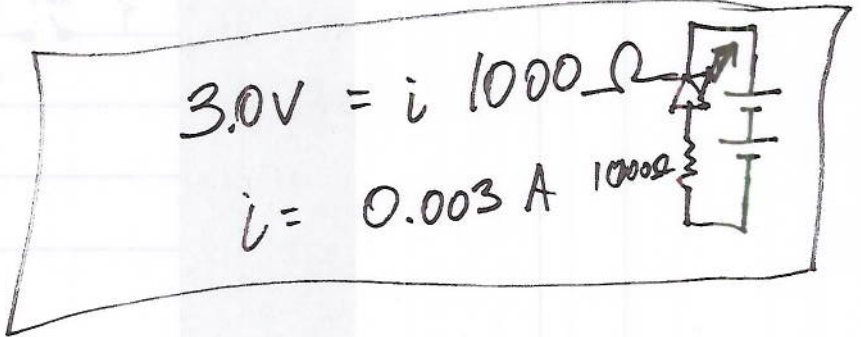 3.0V = i 1000Ω
i = 0.003 A
1000Ω